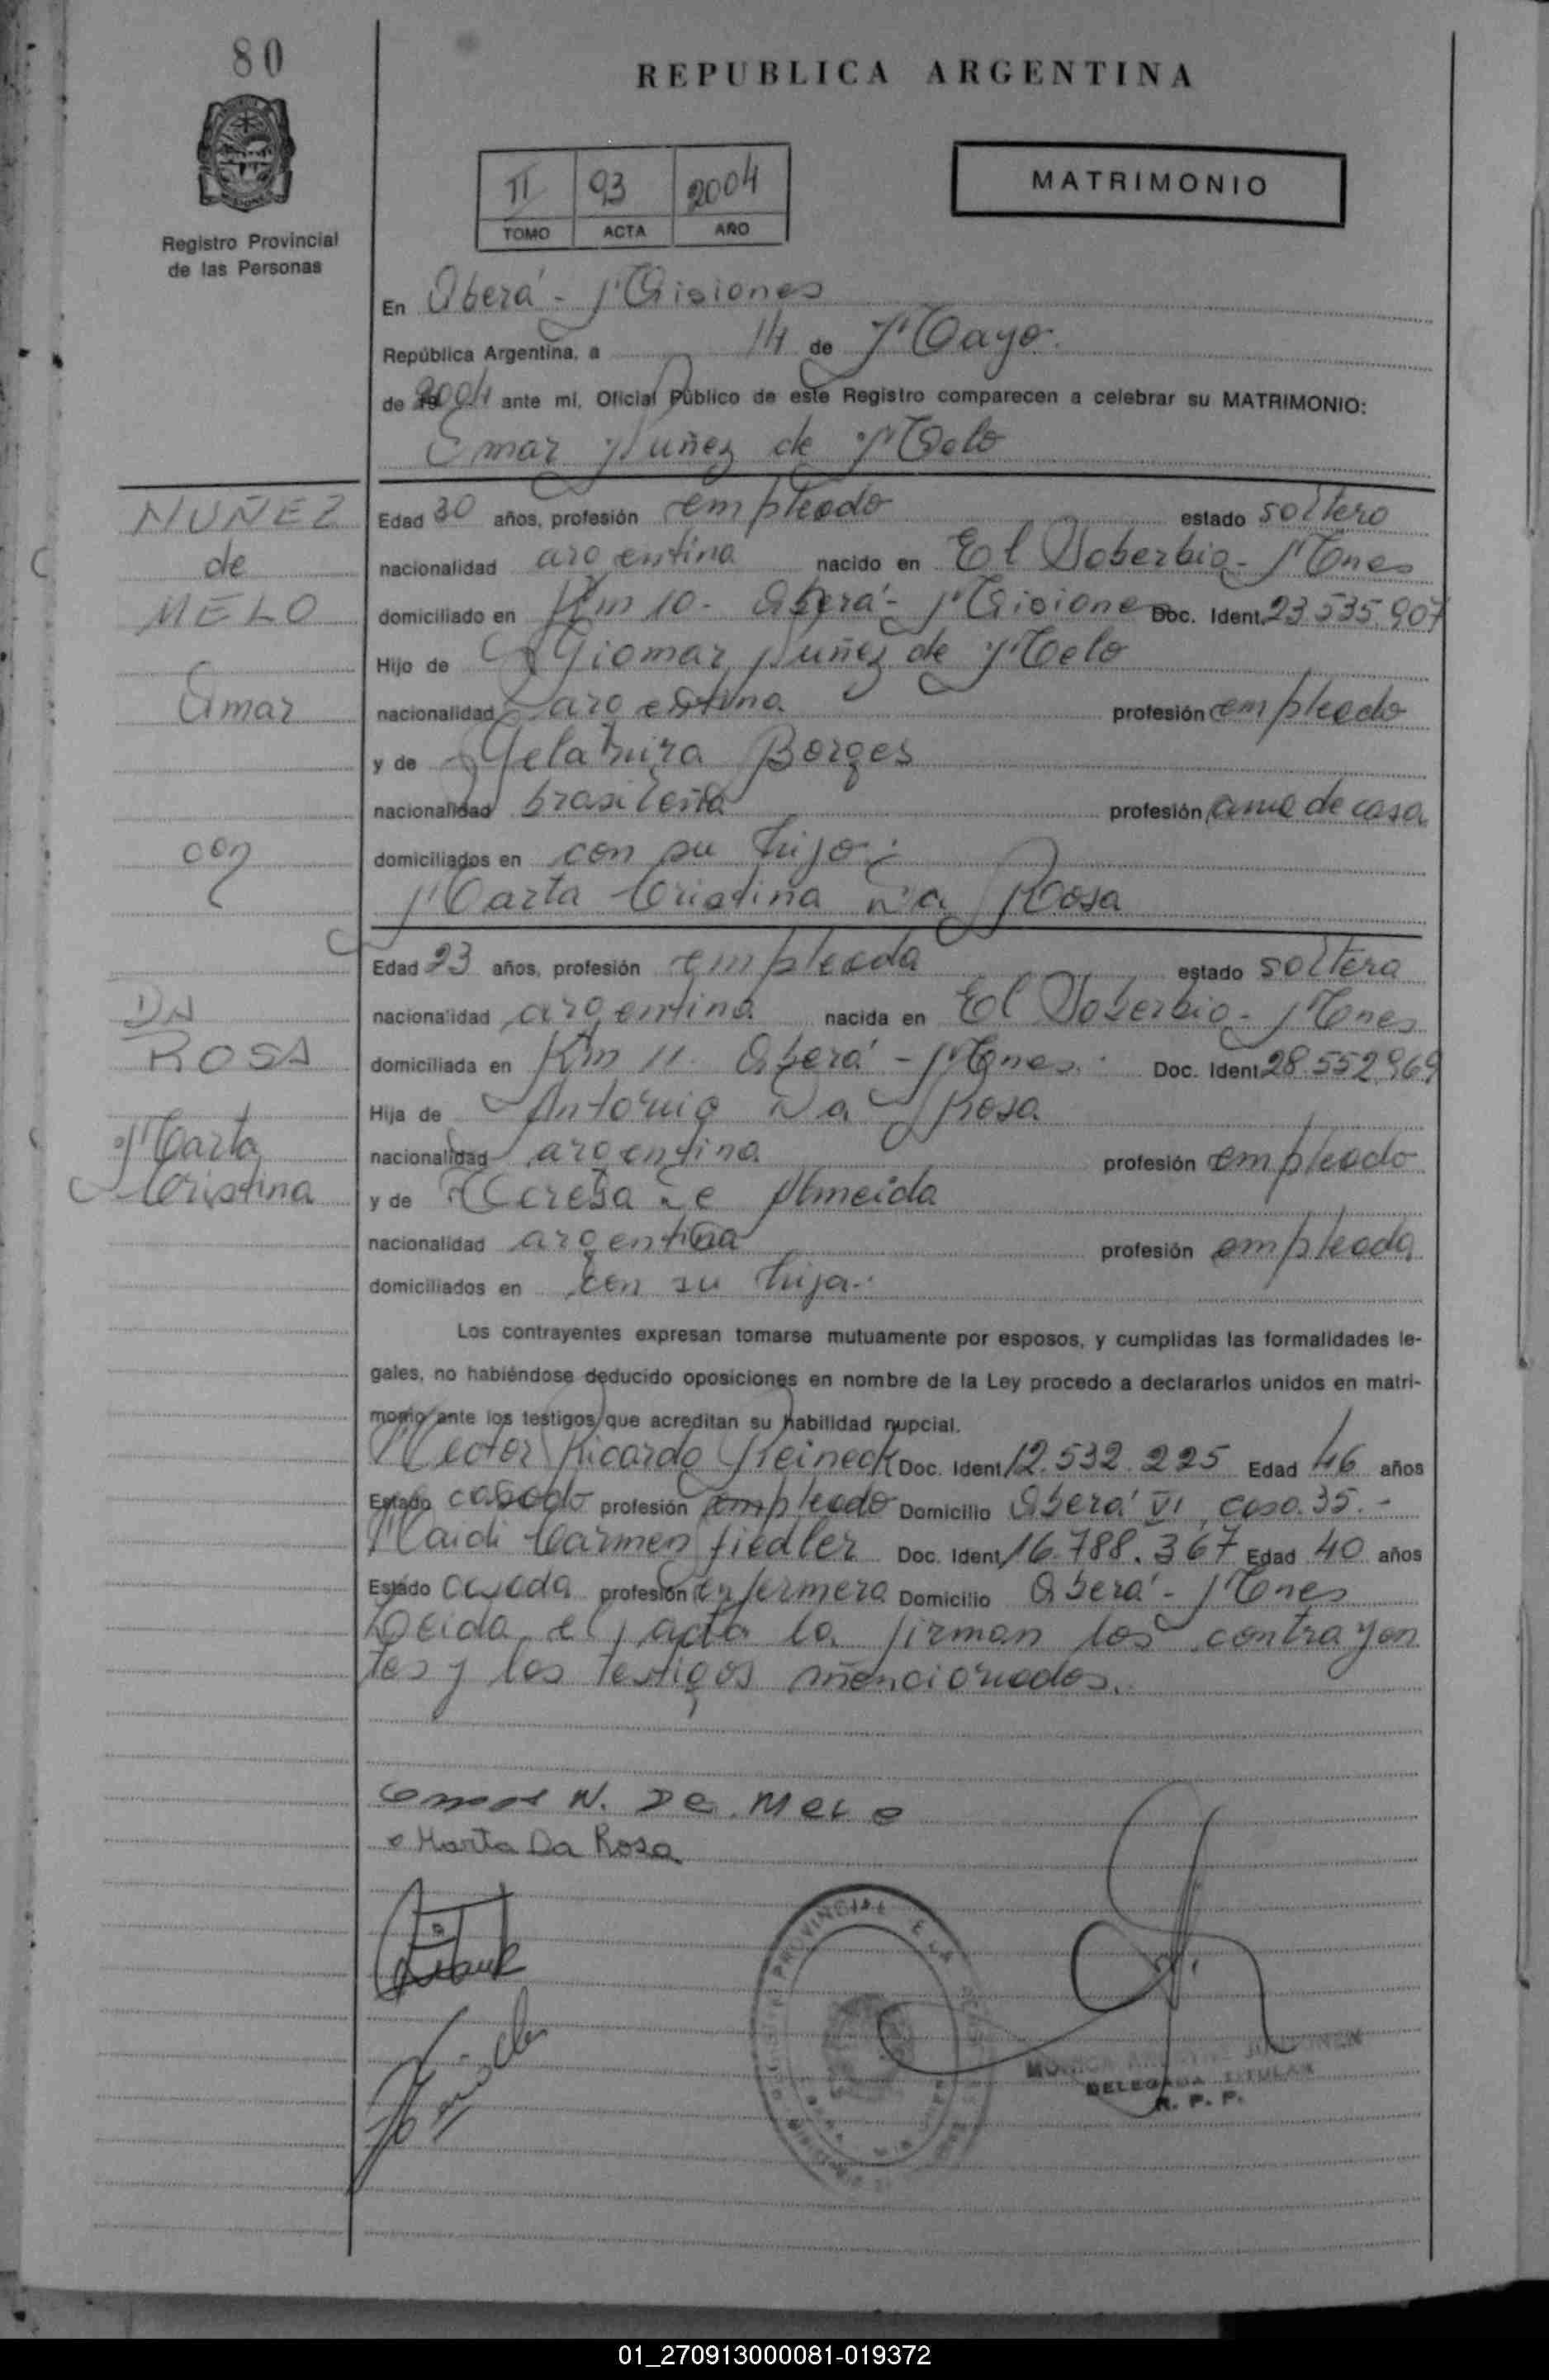 80
REPUBLICA ARGENTINA
II 93 2004
TOMO ACTA AÑO
MATRIMONIO
Registro Provincial
de las Personas
En Oberá - Misiones
República Argentina, a 14 de Mayo.
de 2004 ante mi, Oficial Público de este Registro comparecen a celebrar su MATRIMONIO:
Omar Nuñez de Melo
NUÑEZ
de
MELO
Omar
con
DA
ROSA
Marta
Cristina
Edad 30 años, profesión empleado estado soltero
nacionalidad argentina nacido en El Soberbio - Mnes
domiciliado en Km 10 - Oberá - Misiones Doc. Ident. 23.535.907
Hijo de Giomar Nuñez de Melo
nacionalidad argentina profesión empleado
y de Borges
nacionalidad brasileña profesión ama de casa
domiciliados en con su hijo:
Marta Cristina Da Rosa
Edad 23 años, profesión empleada estado soltera
nacionalidad argentina nacida en El Soberbio - Mnes
domiciliada en Km 11 - Oberá - Mnes. Doc. Ident. 28.552.969
Hija de Antonio Da Rosa
nacionalidad argentina profesión empleado
y de Teresa De Almeida
nacionalidad argentina profesión empleada
domiciliados en con su hija.:
Los contrayentes expresan tomarse mutuamente por esposos, y cumplidas las formalidades le-
gales, no habiéndose deducido oposiciones en nombre de la Ley procedo a declararlos unidos en matri-
monio ante los testigos que acreditan su habilidad nupcial.
Hector Ricardo Reineck Doc. Ident. 12.532.225 Edad 46 años
Estado casado profesión empleado Domicilio Oberá VI, casa 35.-
Haidi Carmen Fiedler Doc. Ident. 16.788.367 Edad 40 años
Estado casada profesión enfermera Domicilio Oberá - Mnes
Leida el acta la firman los contrayen
tes y los testigos mencionados.
Omar N. De Melo
Marta Da Rosa
DELEGADA TITULAR
R. P. P.
01_270913000081-019372